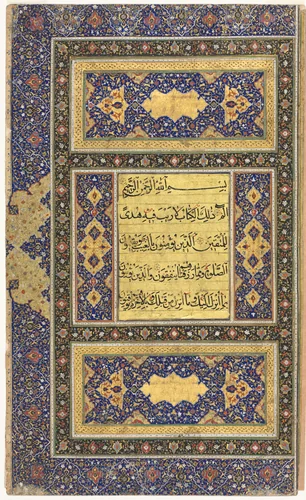 بسم الله الرحمن الرحيم
الم ذلك الكتاب لا ريب فيه هدى
للمتقين الذين يؤمنون بالغيب ويقيمون
الصلوة ومما رزقناهم ينفقون والذين يؤمنون
بما أنزل إليك وما أنزل من قبلك وبالآخرة هم يوقنون